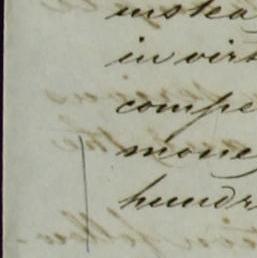 instea
in virt
compe
money
hundr